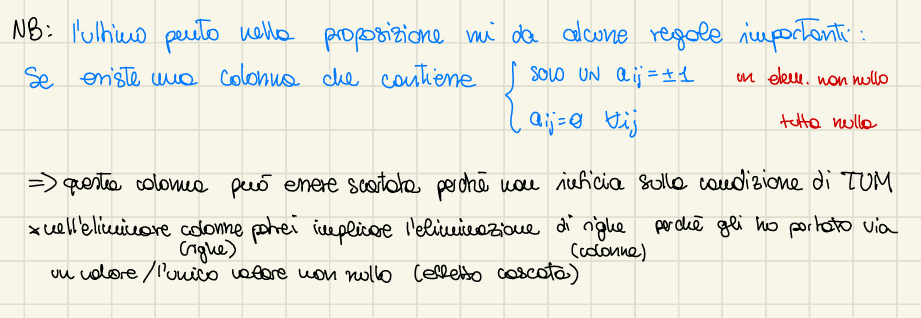 NB: l'ultimo punto nella proposizione mi da alcune regole importanti:
Se esiste una colonna che contiene { SOLO UN aij = ±1 un elem. non nullo
aij = 0 ∀ij tutta nulla
=> questa colonna può essere scartata perchè non inficia sulla condizione di TUM
* nell'eliminare colonne potrei implicare l'eliminazione di righe perchè gli ho portato via
(righe) (colonne)
un valore / l'unico valore non nullo (effetto cascata)